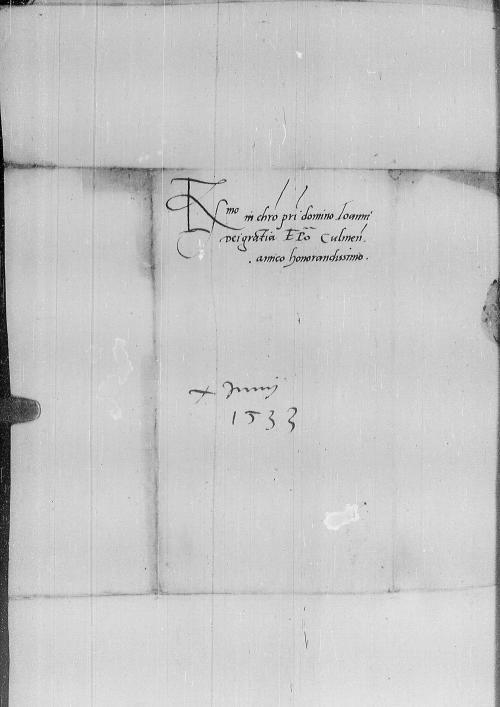 Rmo in chro pri domino Ioanni
Dei gratia Epo Culmen.
. amico honorandissimo .
x Junij
1533